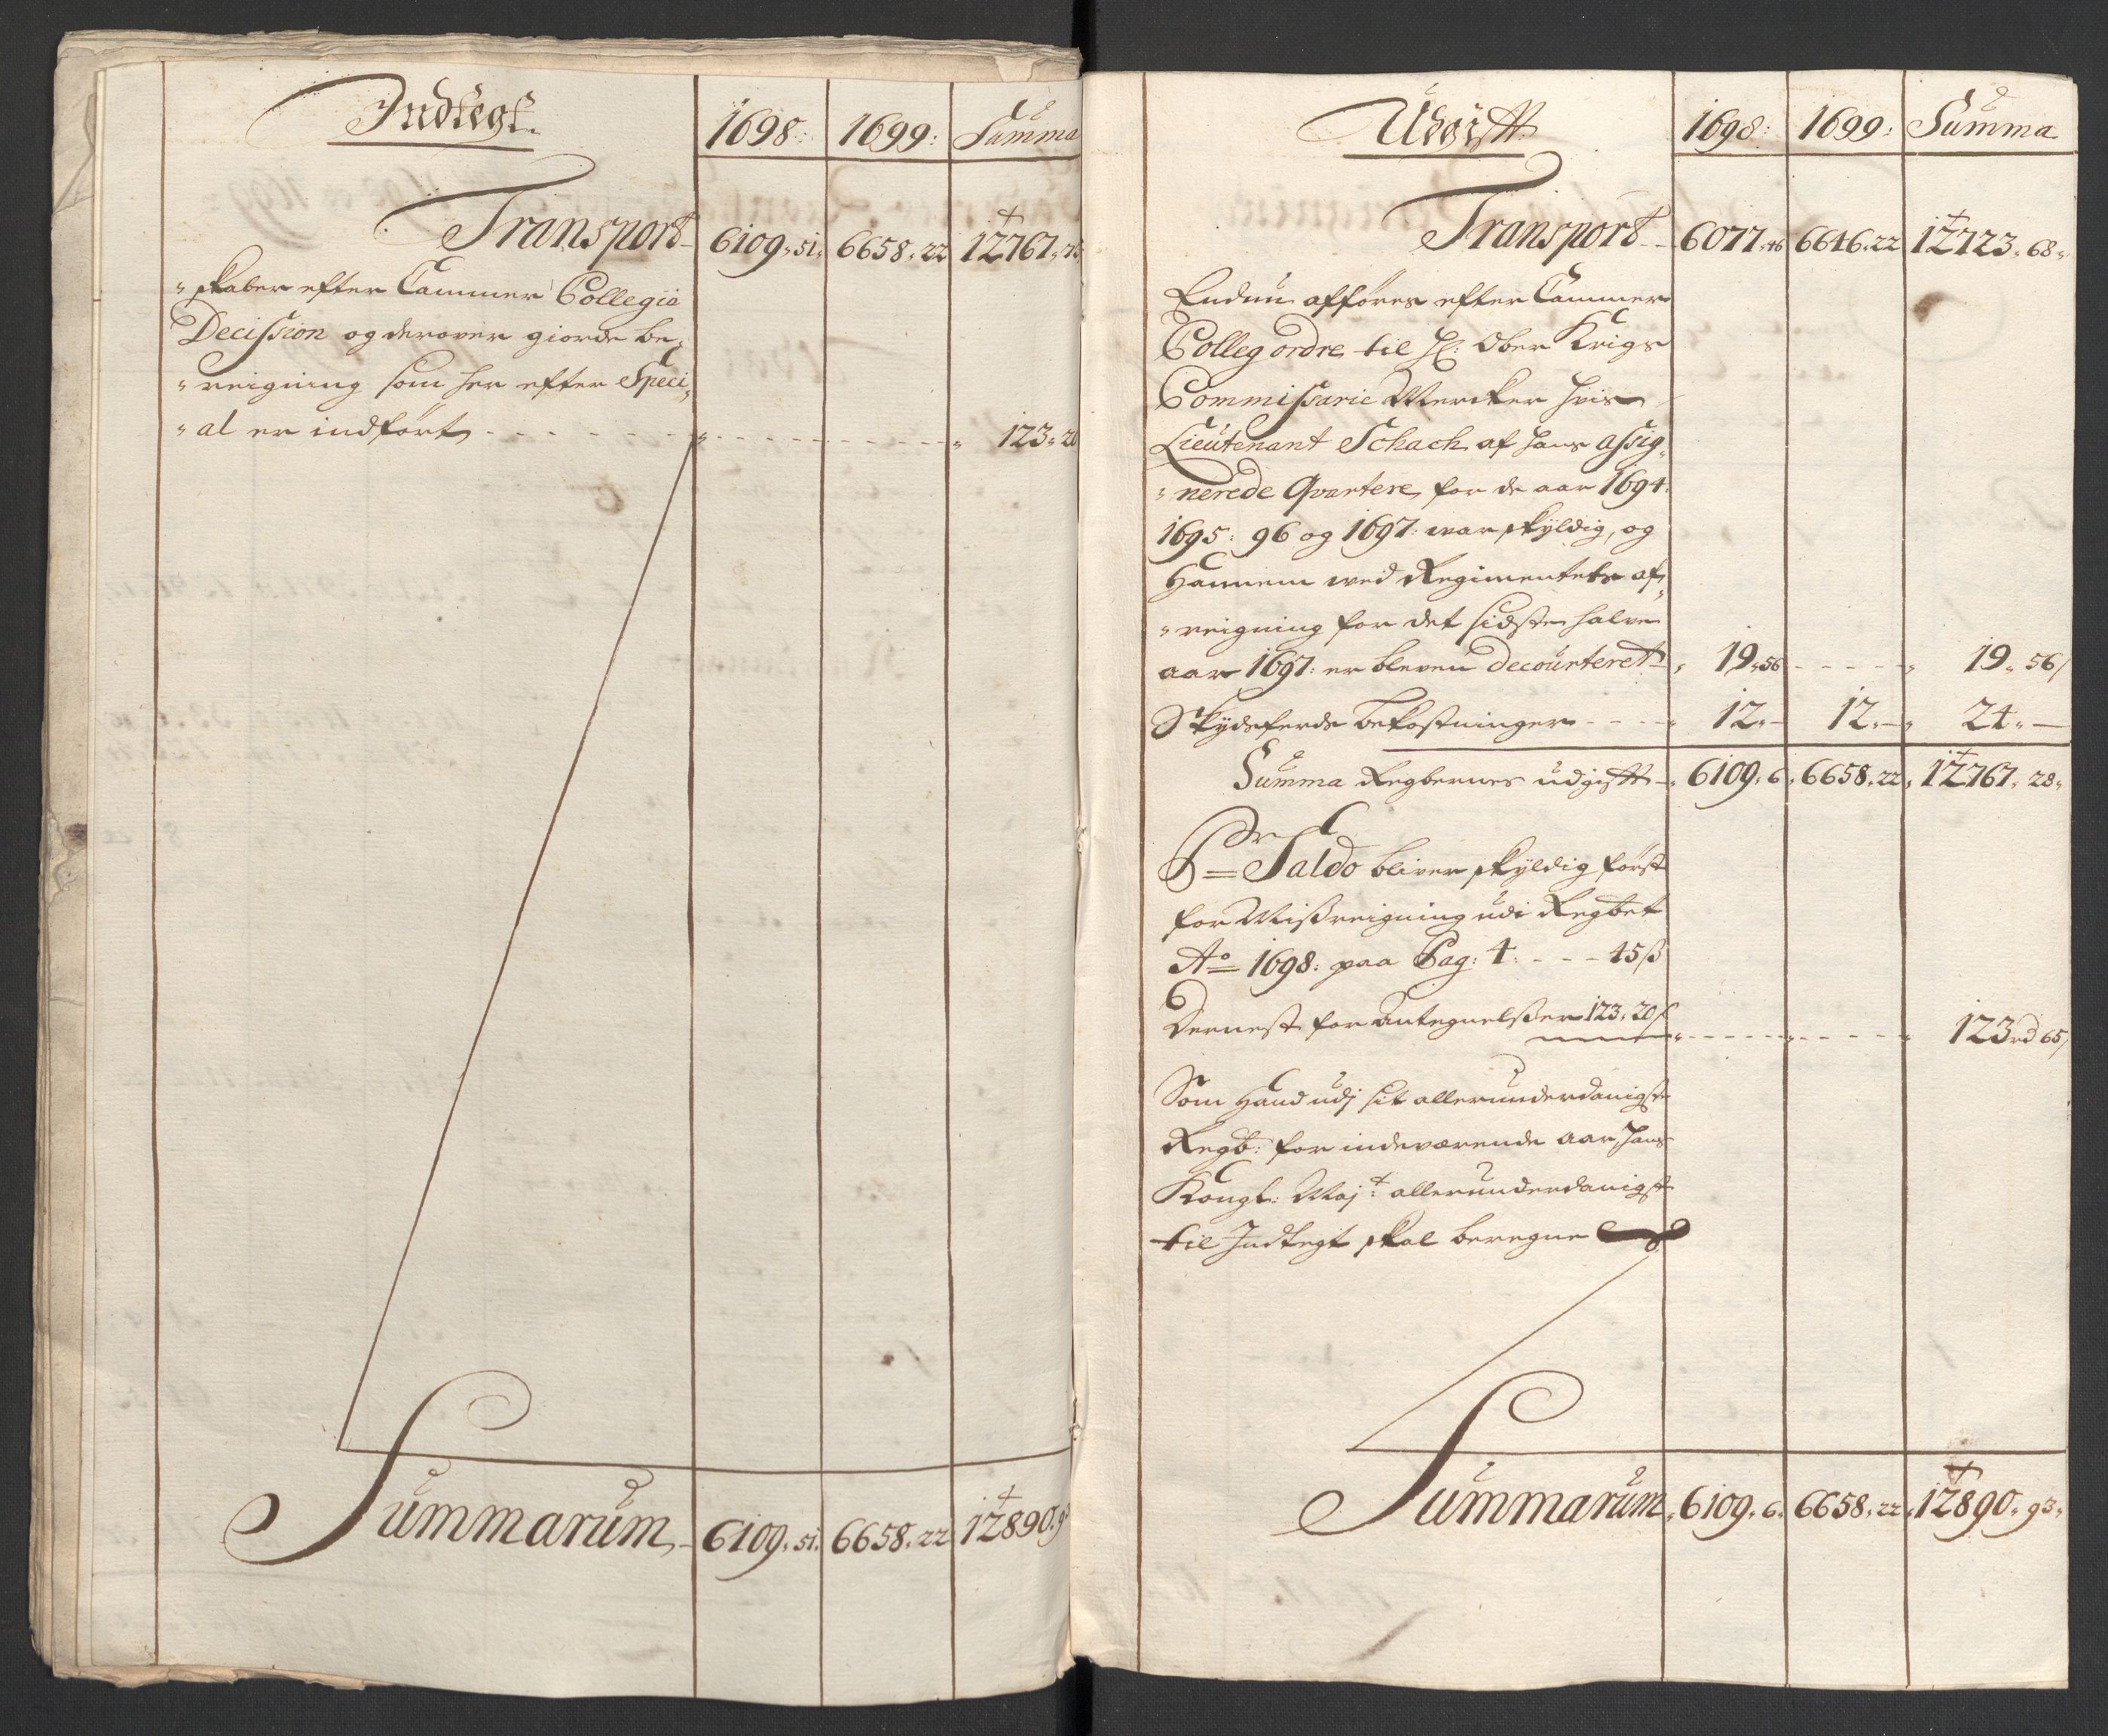 Indtegt.
1698: 1699: Summa
Transport 6109. 51. 6658. 22 12767. 73
"skaber efter Cammer Collegie
Decission og derover giorde be-
"reigning som her efter Speci-
"al er indført - - - - - - - " - - - - - - - - - " 123. 20
Summarum, 6109. 51. 6658. 22 12890. 9
Udgifft
1698: 1699: Summa
Transport - 6077. 46 6646. 22 12723. 68.
Endnu afføres efter Cammer
Colleg ordre til H: Ober Krigs
Commissarie Mercker hvis
Lieutenant Schach af hans assig-
"nerede Qvartere for de aar 1694.
1695: 96 og 1697: war skyldig, og
Hannem wed Regimentets af-
"reigning for det sidste halve
aar 1697: er bleven decourteret - " 19. 56 - - - - - " 19. 56/
Skydsferds bekostninger - - - - " 12. - 12. - " 24. -
Summa Regbernes udgifft - 6109. 6. 6658. 22. 12767. 28.
Pr Saldo bliver skyldig først
for Misreigning udi Regbet
Ao 1698: paa Pag: 4: - - - 45ß
Dernest for Antegnelsser 123. 20ß
" - - - - - " - - - - - " 123rd 65/
Som Hand udj sit allerunderdanigste
Regb: for indeværende aar Hans
Kongl: Maj:t allerunderdanigst
til Indtegt skal beregne
Summarum, 6109. 6. 6658. 22. 12890. 93.